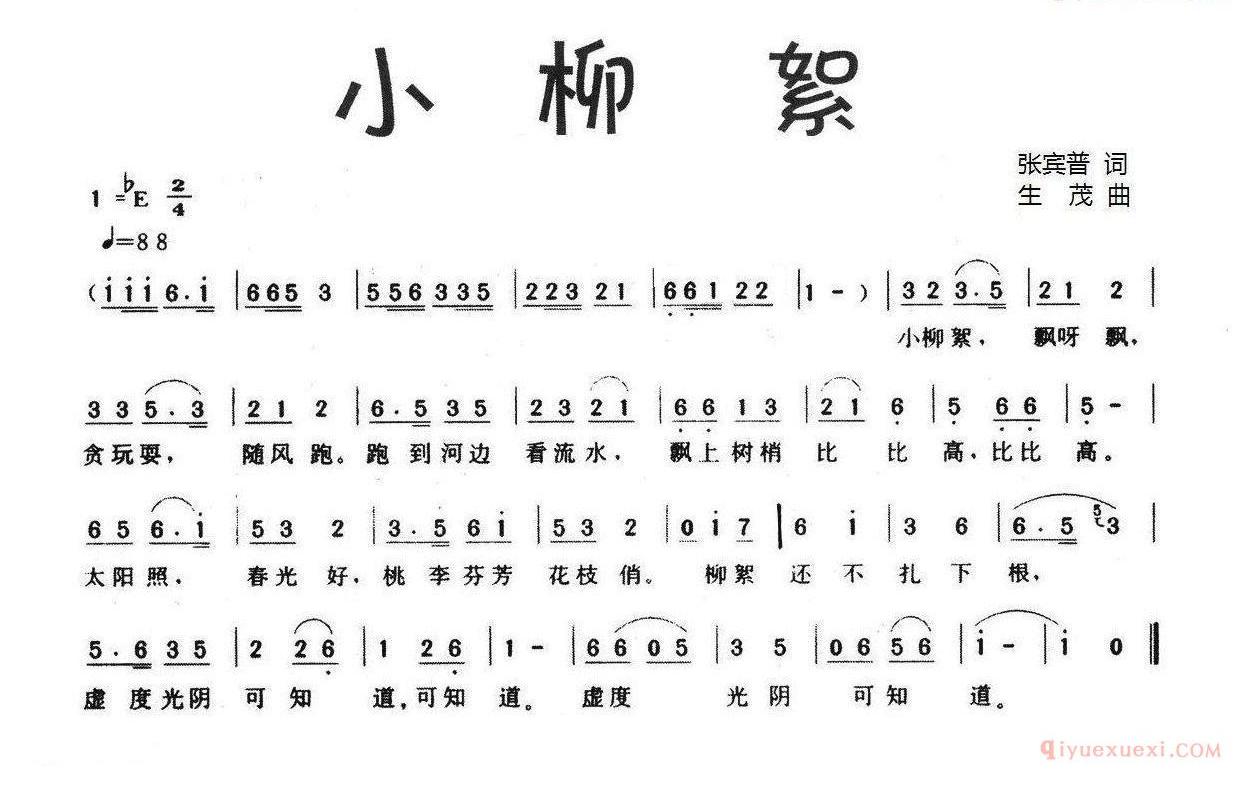 小柳絮
张宾普 词
生 茂 曲
1=♭E 2/4
♩=88
( i i i 6 . i | 6 6 5 3 | 5 5 6 3 3 5 | 2 2 3 2 1 | 6 6 1 2 2 | 1 - ) | 3 2 3 . 5 | 2 1 2 |
小柳絮， 飘呀 飘，
3 3 5 . 3 | 2 1 2 | 6 . 5 3 5 | 2 3 2 1 | 6 6 1 3 | 2 1 6 | 5 6 6 | 5 - |
贪玩耍， 随风 跑。跑 到河边 看流水， 飘上树梢 比 比 高，比比 高。
6 5 6 . i | 5 3 2 | 3 . 5 6 i | 5 3 2 | 0 i 7 | 6 i | 3 6 | 6 . 5 5 3 |
太阳照， 春光 好，桃 李芬芳 花枝俏。 柳絮 还 不 扎 下 根，
5 . 6 3 5 | 2 2 6 | 1 2 6 | 1 - | 6 6 0 5 | 3 5 | 0 6 5 6 | i - | i 0 ‖
虚 度光阴 可 知 道，可知 道。虚度 光 阴 可 知 道。
qiyuexuexi.COM